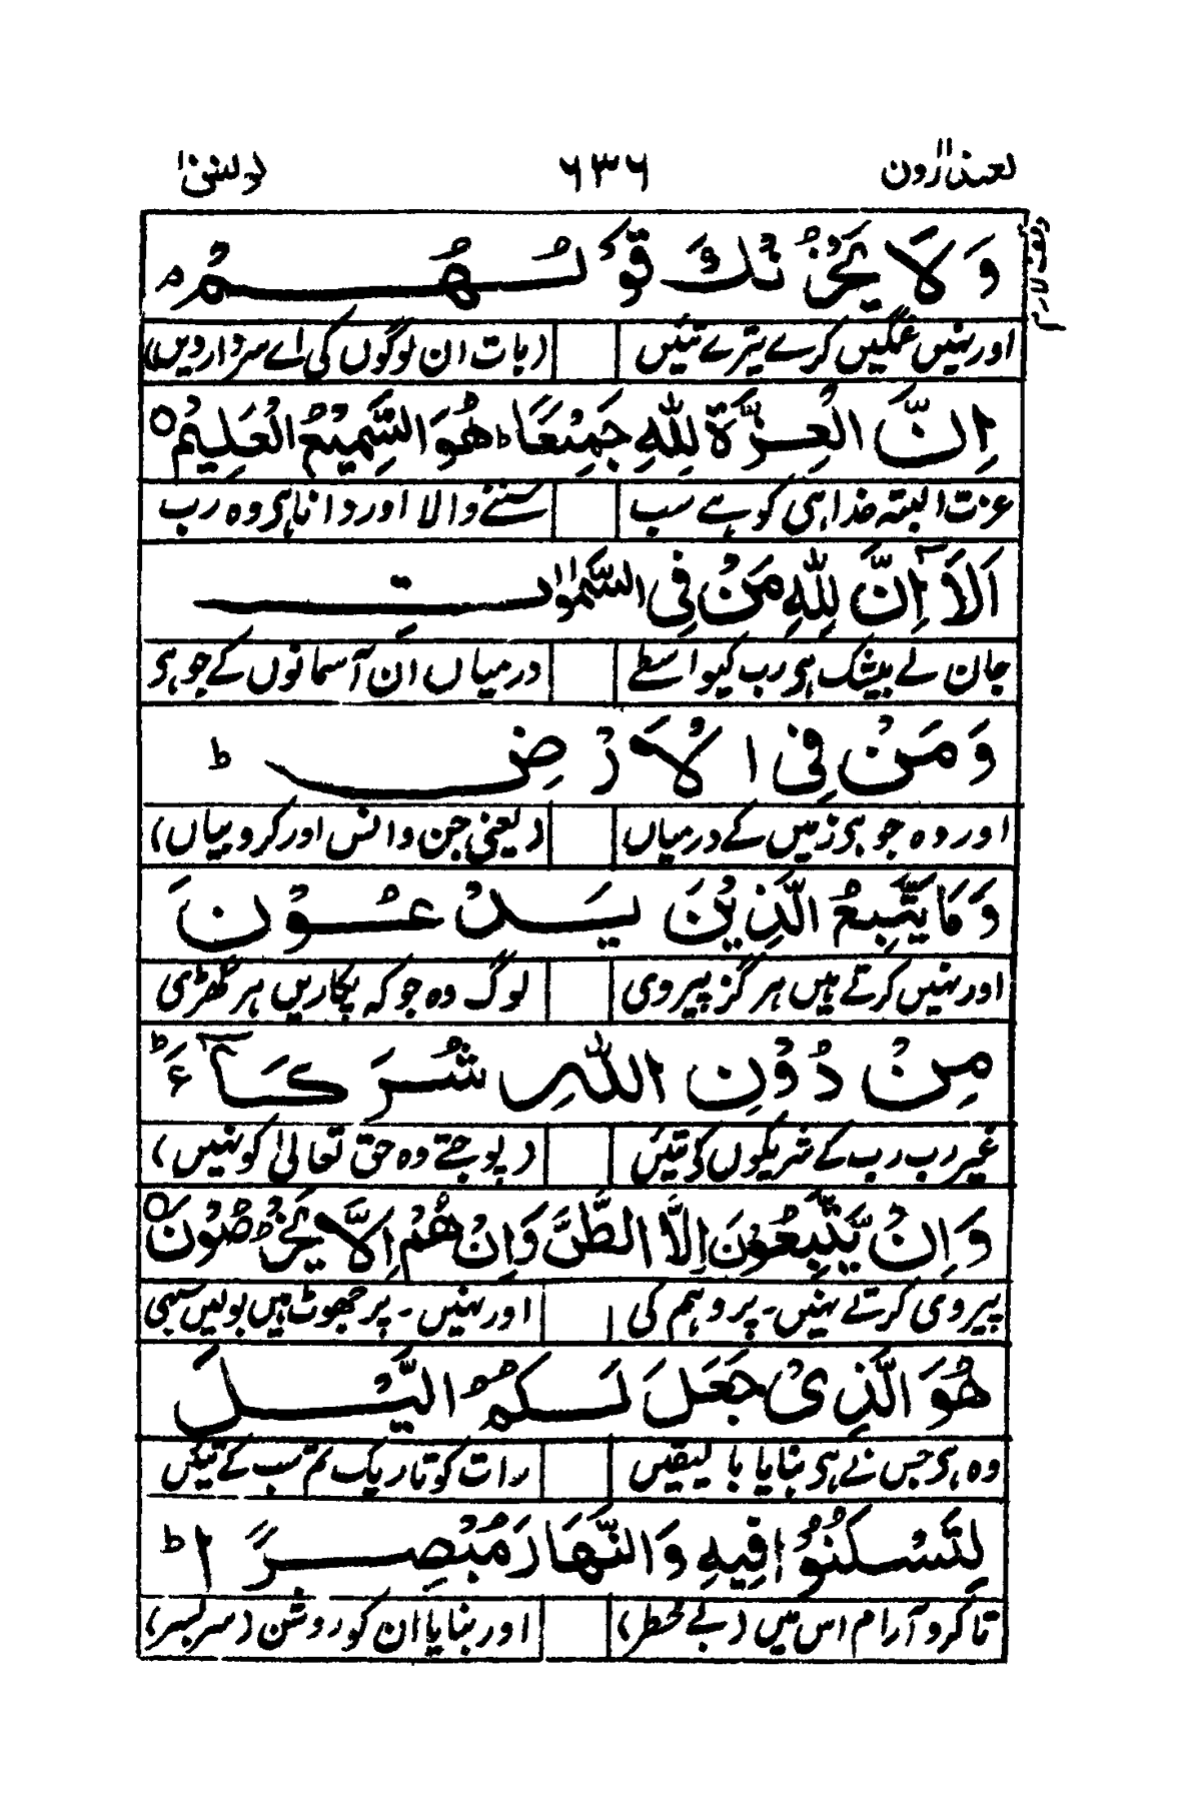 یعتذرون ۱۱ ۶۳۶ یونس ۱۰
وَلَا يَحْزُنْكَ قَوْلُهُمْ م
وقف لازم
اور نہیں غمگیں کرے تیرے تئیں (بات ان لوگوں کی اے سردار دیں)
اِنَّ الْعِزَّةَ لِلّٰهِ جَمِيْعًا ط هُوَ السَّمِيْعُ الْعَلِيْمُ ○
عزت البتہ خدا ہی کو ہے سب سننے والا اور دانا ہی وہ رب
اَلَآ اِنَّ لِلّٰهِ مَنْ فِى السَّمٰوٰتِ
جان لے بیشک ہی رب کیواسطے درمیاں ان آسمانوں کے جو ہی
وَمَنْ فِى الْاَرْضِ ط
اور وہ جو ہی زمیں کے درمیاں (یعنی جن وانس اور کروبیاں)
وَمَا يَتَّبِعُ الَّذِيْنَ يَدْعُوْنَ
اور نہیں کرتے ہیں ہرگز پیروی لوگ وہ جو کہ پکاریں ہر گھڑی
مِنْ دُوْنِ اللّٰهِ شُرَكَآءَ ط
غیر رب رب کے شریکوں کی تئیں (پوجتے وہ حق تعالیٰ کو نہیں)
وَاِنْ يَّتَّبِعُوْنَ اِلَّا الظَّنَّ وَاِنْ هُمْ اِلَّا يَخْرُصُوْنَ ○
پیروی کرتے نہیں ۔ پر وہم کی اور نہیں ۔ پر جھوٹ ہیں بولیں سبھی
هُوَ الَّذِىْ جَعَلَ لَكُمُ الَّيْلَ
وہ ہی جس نے ہی بنایا بالیقیں رات کو تاریک تم سب کے تئیں
لِتَسْكُنُوْا فِيْهِ وَالنَّهَارَ مُبْصِرًا ط
تا کرو آرام اس میں (بے خطر) اور بنایا ان کو روشن (سر بسر)